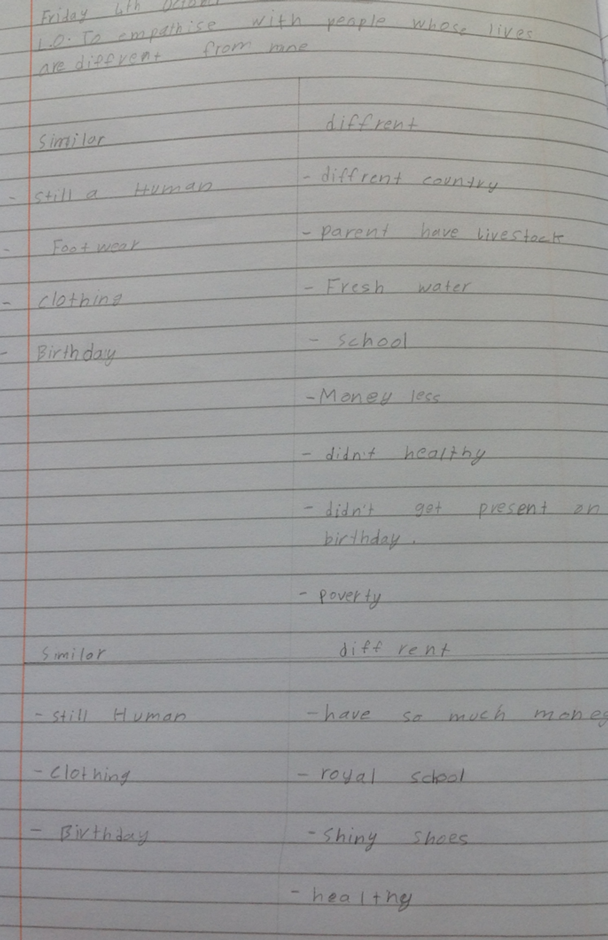 Friday 4th October
L.O. To empathise with people whose lives
are diffrent from mine
Similar diffrent
- still a Human - diffrent country
- Footwear - parent have livestock
- clothing - Fresh water
- Birthday - school
- Money less
- didn't healthy
- didn't get present on
birthday.
- poverty
Similar diffrent
- still Human - have so much money
- clothing - royal school
- Birthday - shiny shoes
- healthy